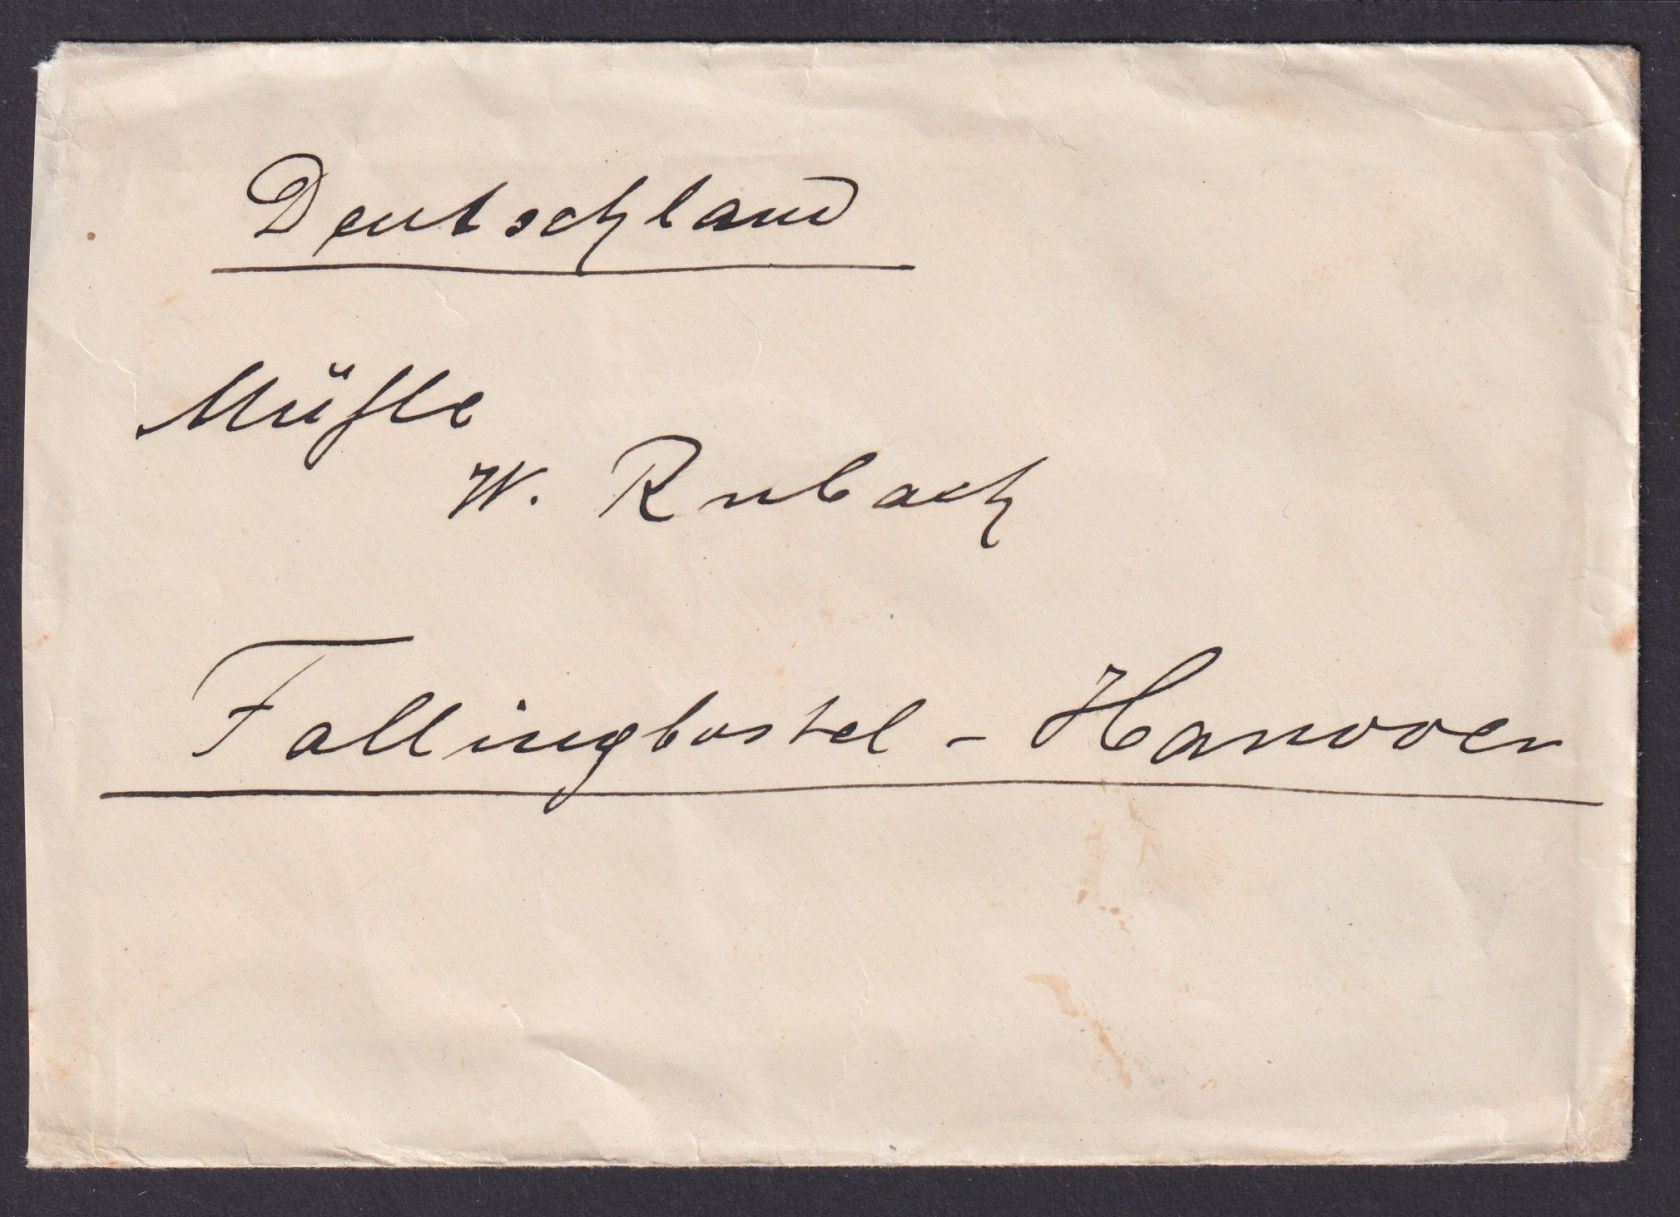 Deutschland
Mühle
W. Rubach
Fallingbostel - Hannover